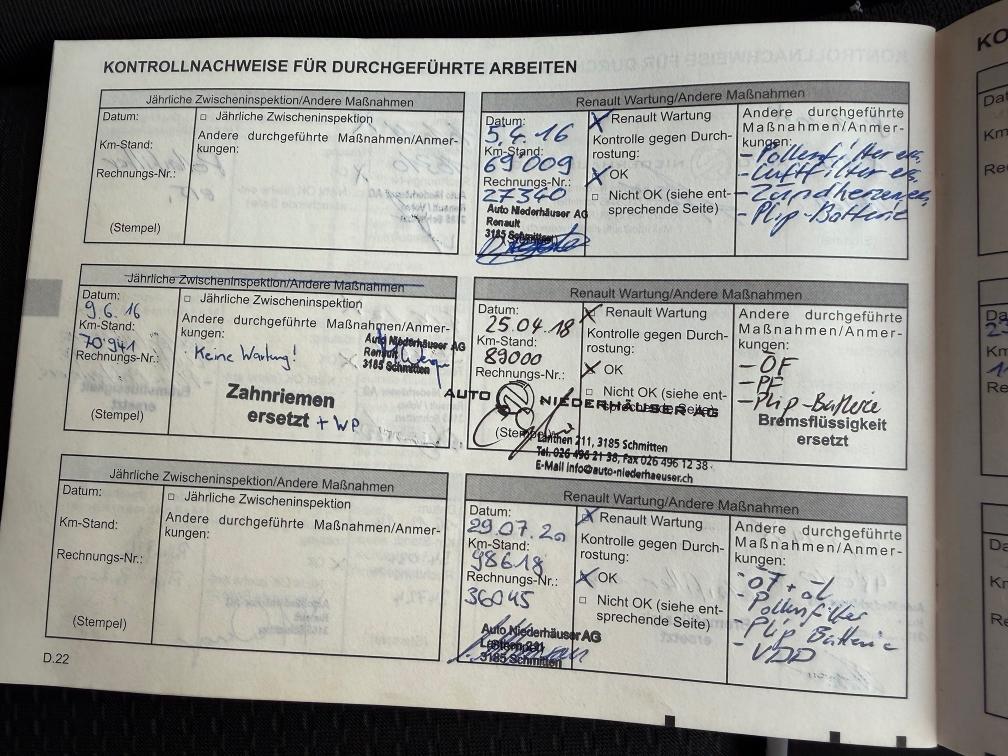 KONTROLLNACHWEISE FÜR DURCHGEFÜHRTE ARBEITEN
Jährliche Zwischeninspektion/Andere Maßnahmen
Datum:
Km-Stand:
Rechnungs-Nr.:
(Stempel)
□ Jährliche Zwischeninspektion
Andere durchgeführte Maßnahmen/Anmer-
kungen:
Renault Wartung/Andere Maßnahmen
Datum:
5.4.16
Km-Stand:
69009
Rechnungs-Nr.:
27340
Auto Niederhäuser AG
Renault
3185 Schmitten
X Renault Wartung
Kontrolle gegen Durch-
rostung:
X OK
□ Nicht OK (siehe ent-
sprechende Seite)
Andere durchgeführte
Maßnahmen/Anmer-
kungen:
- Pollenfilter ers.
- Luftfilter ers.
- Zündkerzen ers.
- Plip-Batterie
Jährliche Zwischeninspektion/Andere Maßnahmen
Datum:
9.6.16
Km-Stand:
70941
Rechnungs-Nr.:
(Stempel)
□ Jährliche Zwischeninspektion
Andere durchgeführte Maßnahmen/Anmer-
kungen:
Keine Wartung!
Auto Niederhäuser AG
Renault
3185 Schmitten
Zahnriemen
ersetzt + WP
Renault Wartung/Andere Maßnahmen
Datum:
25.04.18
Km-Stand:
89000
Rechnungs-Nr.:
(Stempel)
X Renault Wartung
Kontrolle gegen Durch-
rostung:
X OK
□ Nicht OK (siehe ent-
sprechende Seite)
AUTO NIEDERHÄUSER AG
Lanthen 211, 3185 Schmitten
Tel. 026 496 21 38, Fax 026 496 12 38
E-Mail info@auto-niederhaeuser.ch
Andere durchgeführte
Maßnahmen/Anmer-
kungen:
- ÖF
- PF
- Plip-Batterie
Bremsflüssigkeit
ersetzt
Jährliche Zwischeninspektion/Andere Maßnahmen
Datum:
Km-Stand:
Rechnungs-Nr.:
(Stempel)
□ Jährliche Zwischeninspektion
Andere durchgeführte Maßnahmen/Anmer-
kungen:
Renault Wartung/Andere Maßnahmen
Datum:
29.07.20
Km-Stand:
98618
Rechnungs-Nr.:
36045
Auto Niederhäuser AG
Lanthen 211
3185 Schmitten
X Renault Wartung
Kontrolle gegen Durch-
rostung:
X OK
□ Nicht OK (siehe ent-
sprechende Seite)
Andere durchgeführte
Maßnahmen/Anmer-
kungen:
- ÖF + öl
- Pollenfilter
- Plip Batterie
- VDD
D.22